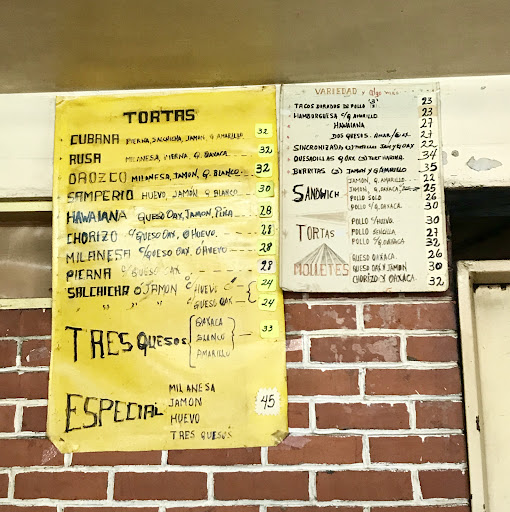 TORTAS
CUBANA PIERNA, SALCHICHA, JAMON, Q. AMARILLO. 32
RUSA MILANESA, PIERNA, Q. OAXACA. 32
OROZCO MILANESA, JAMON, Q. BLANCO. 32
SAMPERIO HUEVO, JAMON, Q. BLANCO. 30
HAWAIANA QUESO OAX, JAMON, PIÑA 28
CHORIZO C/QUESO OAX. O HUEVO. 28
MILANESA C/QUESO OAX. O HUEVO 28
PIERNA C/QUESO OAX 28
SALCHICHA O JAMON C/ HUEVO 24
QUESO OAX 24
TRES QUESOS OAXACA BLANCO AMARILLO 33
ESPECIAL MILANESA JAMON HUEVO TRES QUESOS 45
VARIEDAD y Algo más
TACOS DORADOS DE POLLO "3" 23
HAMBURGUESA C/Q AMARILLO 23
HAWAIANA 27
DOS QUESOS. AMAR/OAX. 27
SINCRONIZADA JAM Y Q OAX 22
QUESADILLAS Q OAX HARINA. 34
BURRITAS JAMON Y Q AMARILLO 35
SANDWICH
JAMON, Q. AMARILLO. 22
JAMON, Q. OAXACA, 25
POLLO SOLO 26
POLLO C/Q. OAXACA. 30
TORTAS
POLLO C/HUEVO. 30
POLLO SENCILLA 27
POLLO C/Q OAXACA 32
MOLLETES
QUESO OAXACA. 26
QUESO OAX Y JAMON 30
CHORIZO Y OAXACA. 32